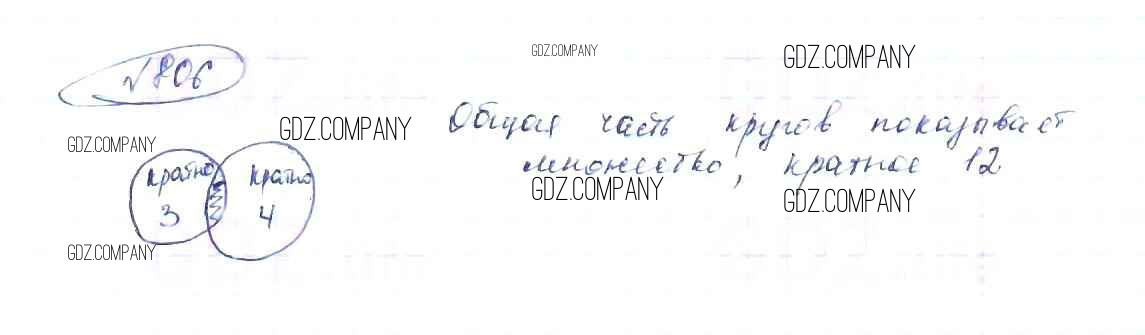 √806
GDZ.COMPANY
GDZ.COMPANY
GDZ.COMPANY
GDZ.COMPANY
Общая часть кругов показывает
множество, кратное 12
GDZ.COMPANY
GDZ.COMPANY
кратно кратно
3 4
GDZ.COMPANY